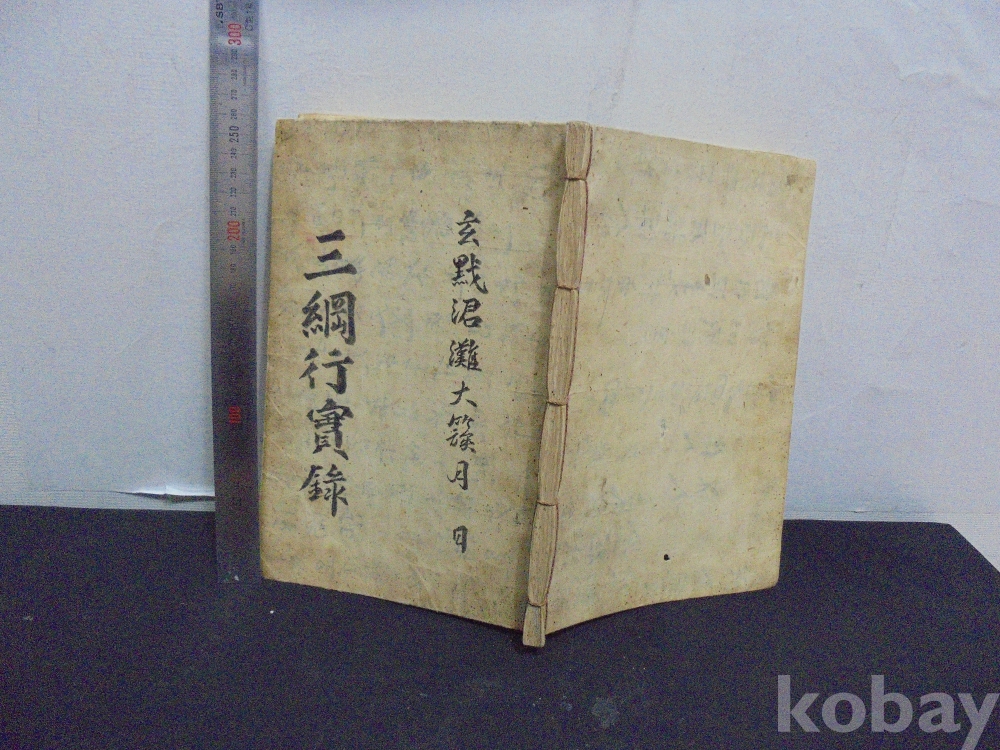 玄黓涒灘大簇月 日
三綱行實錄
300
250
200
100
kobay